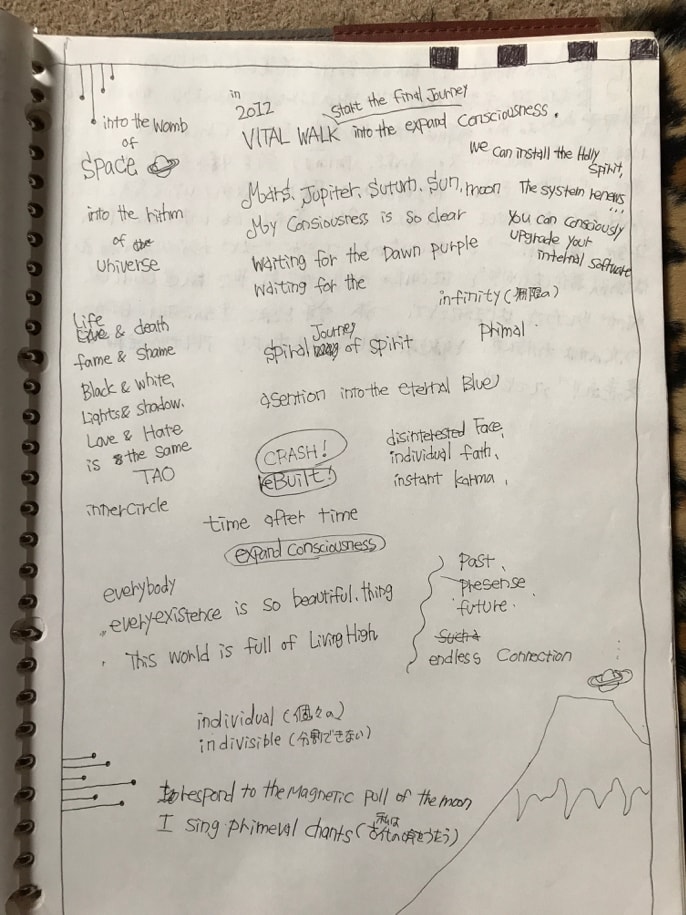 into the womb
of
space
into the rithm
of the
universe
Life
& death
fame & shame
Black & white,
Lights & shadow.
Love & Hate
is the same
TAO
innerCircle
in
2012
Start the Final Journey
VITAL WALK into the expand Consciousness.
Mars, Jupiter, Suturn, Sun, moon
My Consiousness is so clear
waiting for the Dawn purple
waiting for the
infinity (無限の)
Journey
spiral of spirit
Phimal
asention into the eternal Blue
CRASH!
reBuilt!
time after time
expand Consciousness
we can install the Holly
Spirit,
The system renews
...
You can consciously
upgrade your
internal software
disinterested Face,
individual fath,
instant karma,
everybody
every existence is so beautiful. thing
This world is full of Living High
Past,
presense
future.
Such a
endless Connection
individual (個々の)
indivisible (分割できない)
to respond to the magnetic pull of the moon
I sing phimeval chants (私は古代の唄をうたう)